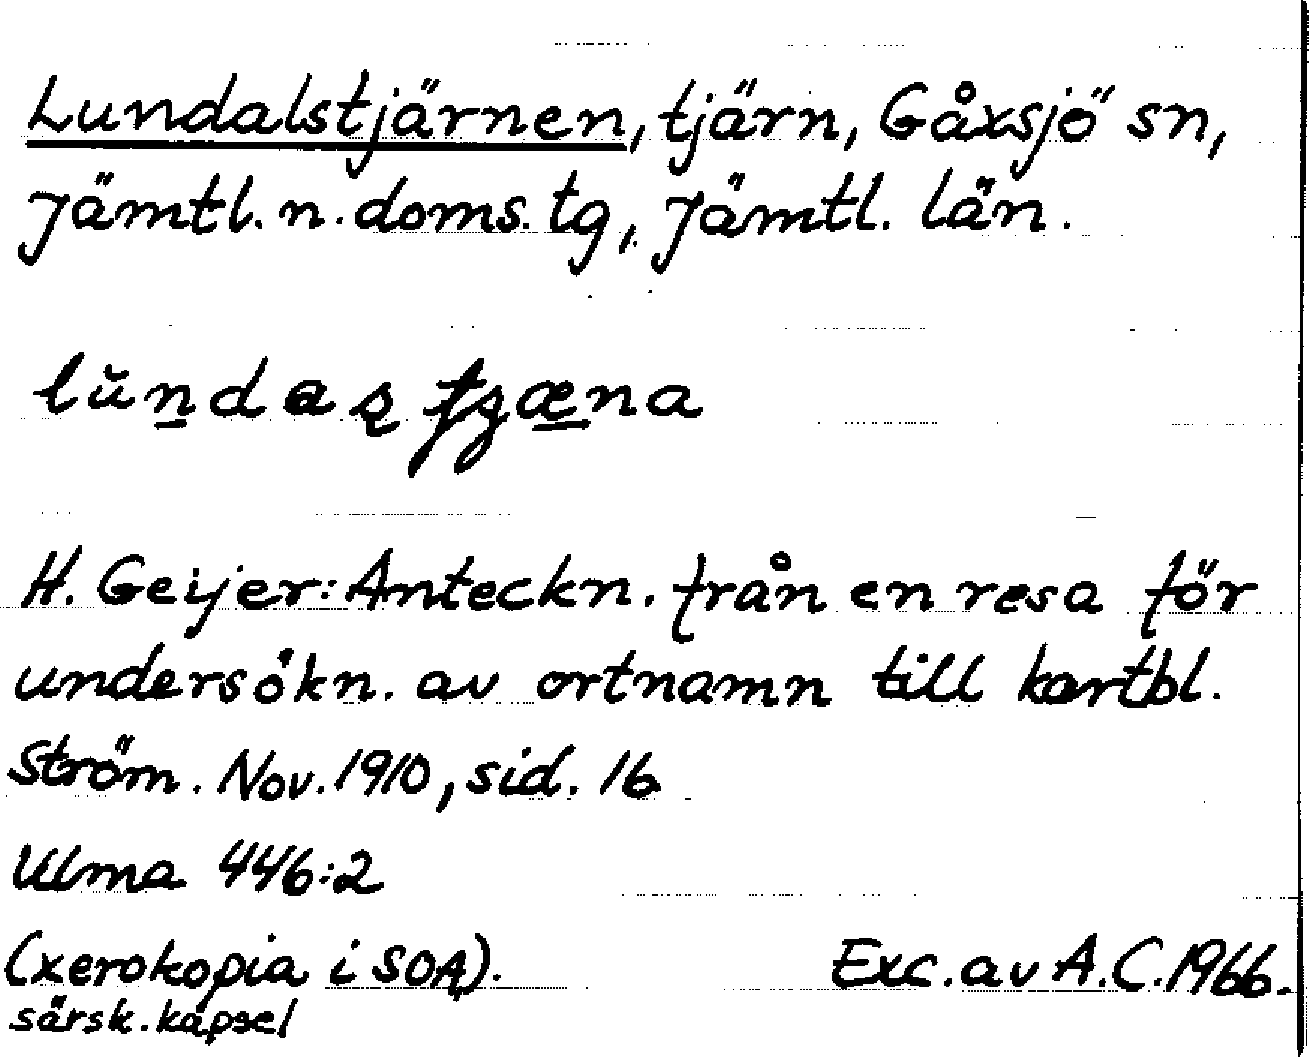 Lundalstjärnen, tjärn, Gåxsjö sn,
Jämtl. n. doms. tg, Jämtl. län.
H. Geijer: Anteckn. från en resa för
undersökn. av ortnamn till kartbl.
Ström. Nov. 1910, sid. 16
Ulma 446:2
(xerokopia i SOA). Exc. av A.C. 1966.
särsk. kapsel